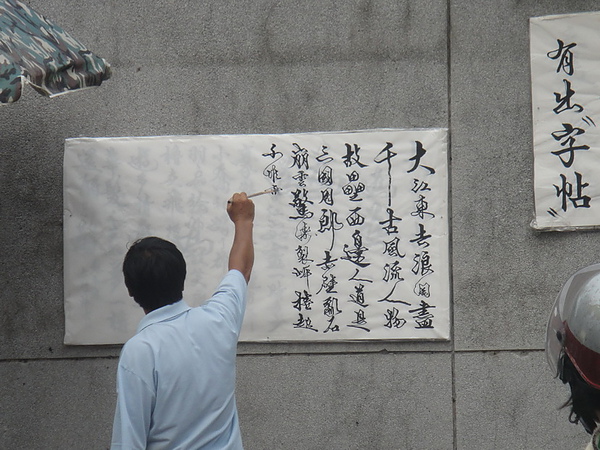 有出〝字帖〞
大江東去浪淘盡
千古風流人物
故壘西邊人道是
三國周郎赤壁亂石
崩雲驚濤裂岸捲起
千堆雪